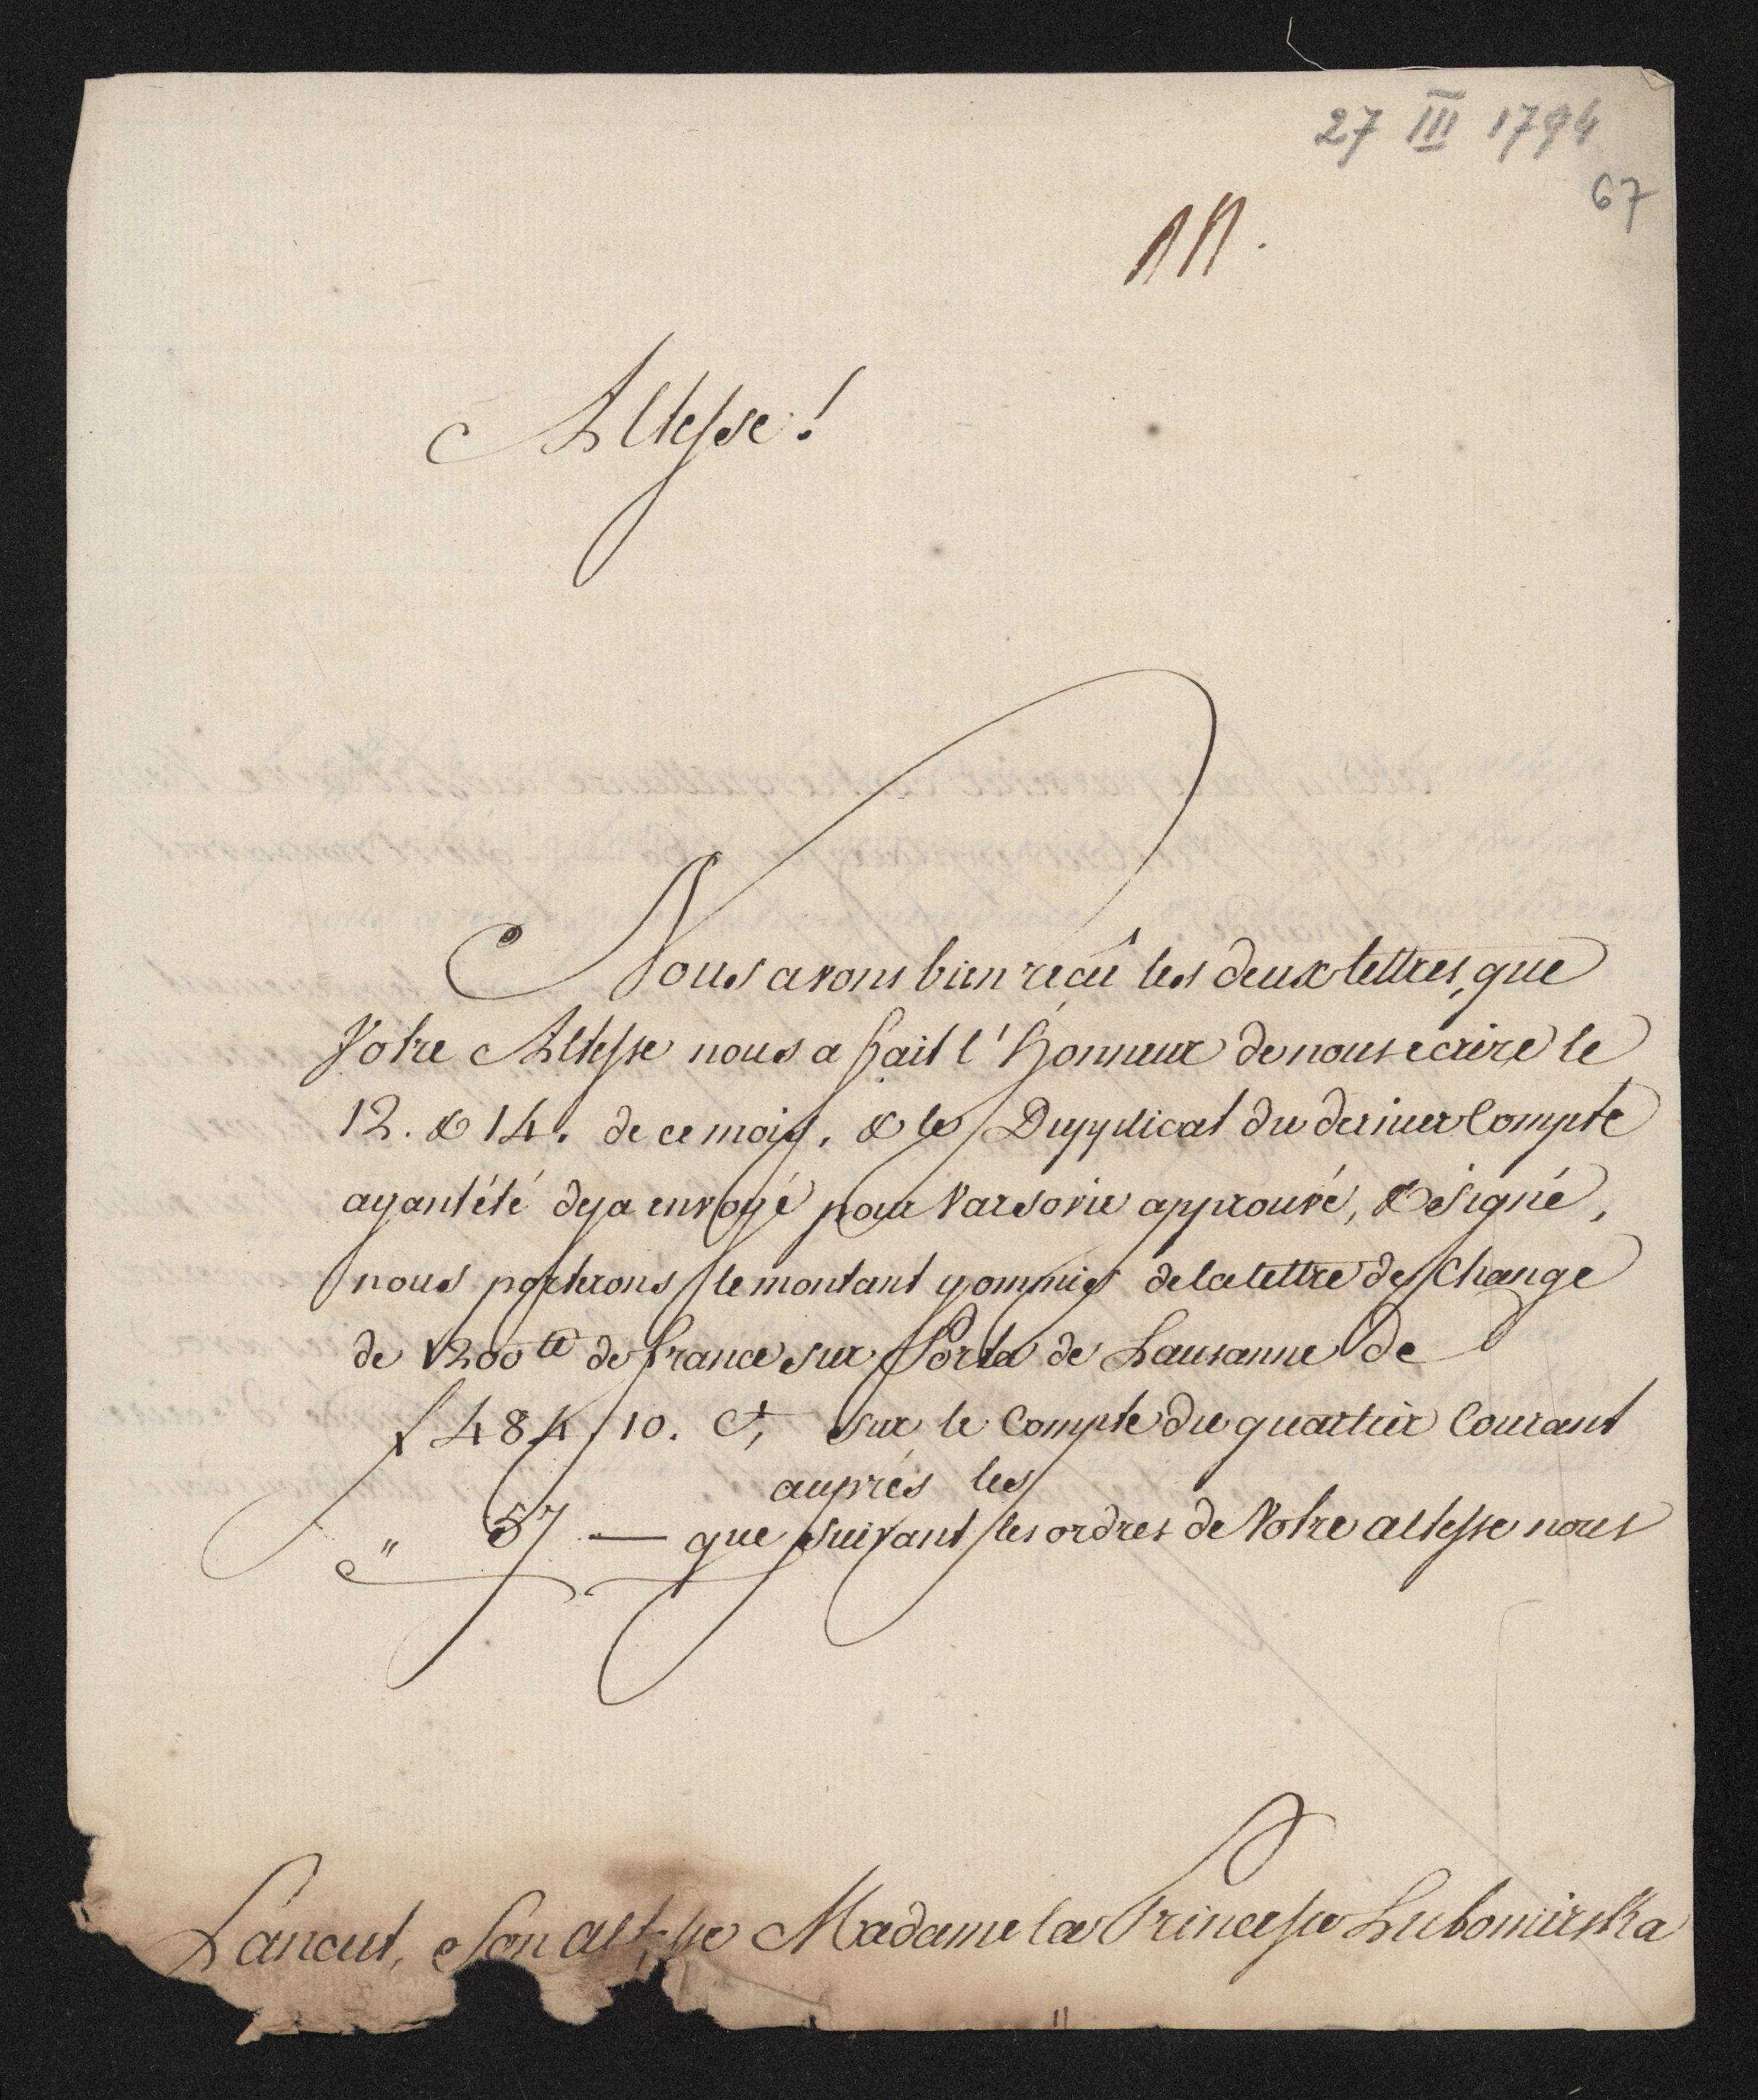 27 III 1794
67
Altesse!
Nous avons bien reçû les deux lettres, que
Votre Altesse nous a fait l'honneur de nous ecrire le
12. & 14. de ce mois, & le Dupplicat du dernier Compte
ayant été deja envoyé pour Varsovie approuvé, & signé,
nous porterons le montant de la lettre de Change
de 1200 tt de france sur Porta de Lausanne de
f 484, 10. Ct, sur le Compte du quartier Courant
auprés les
" 57 — que suivant les ordres de Votre altesse nous
Lancut, Son altesse Madame la Princesse Lubomirska